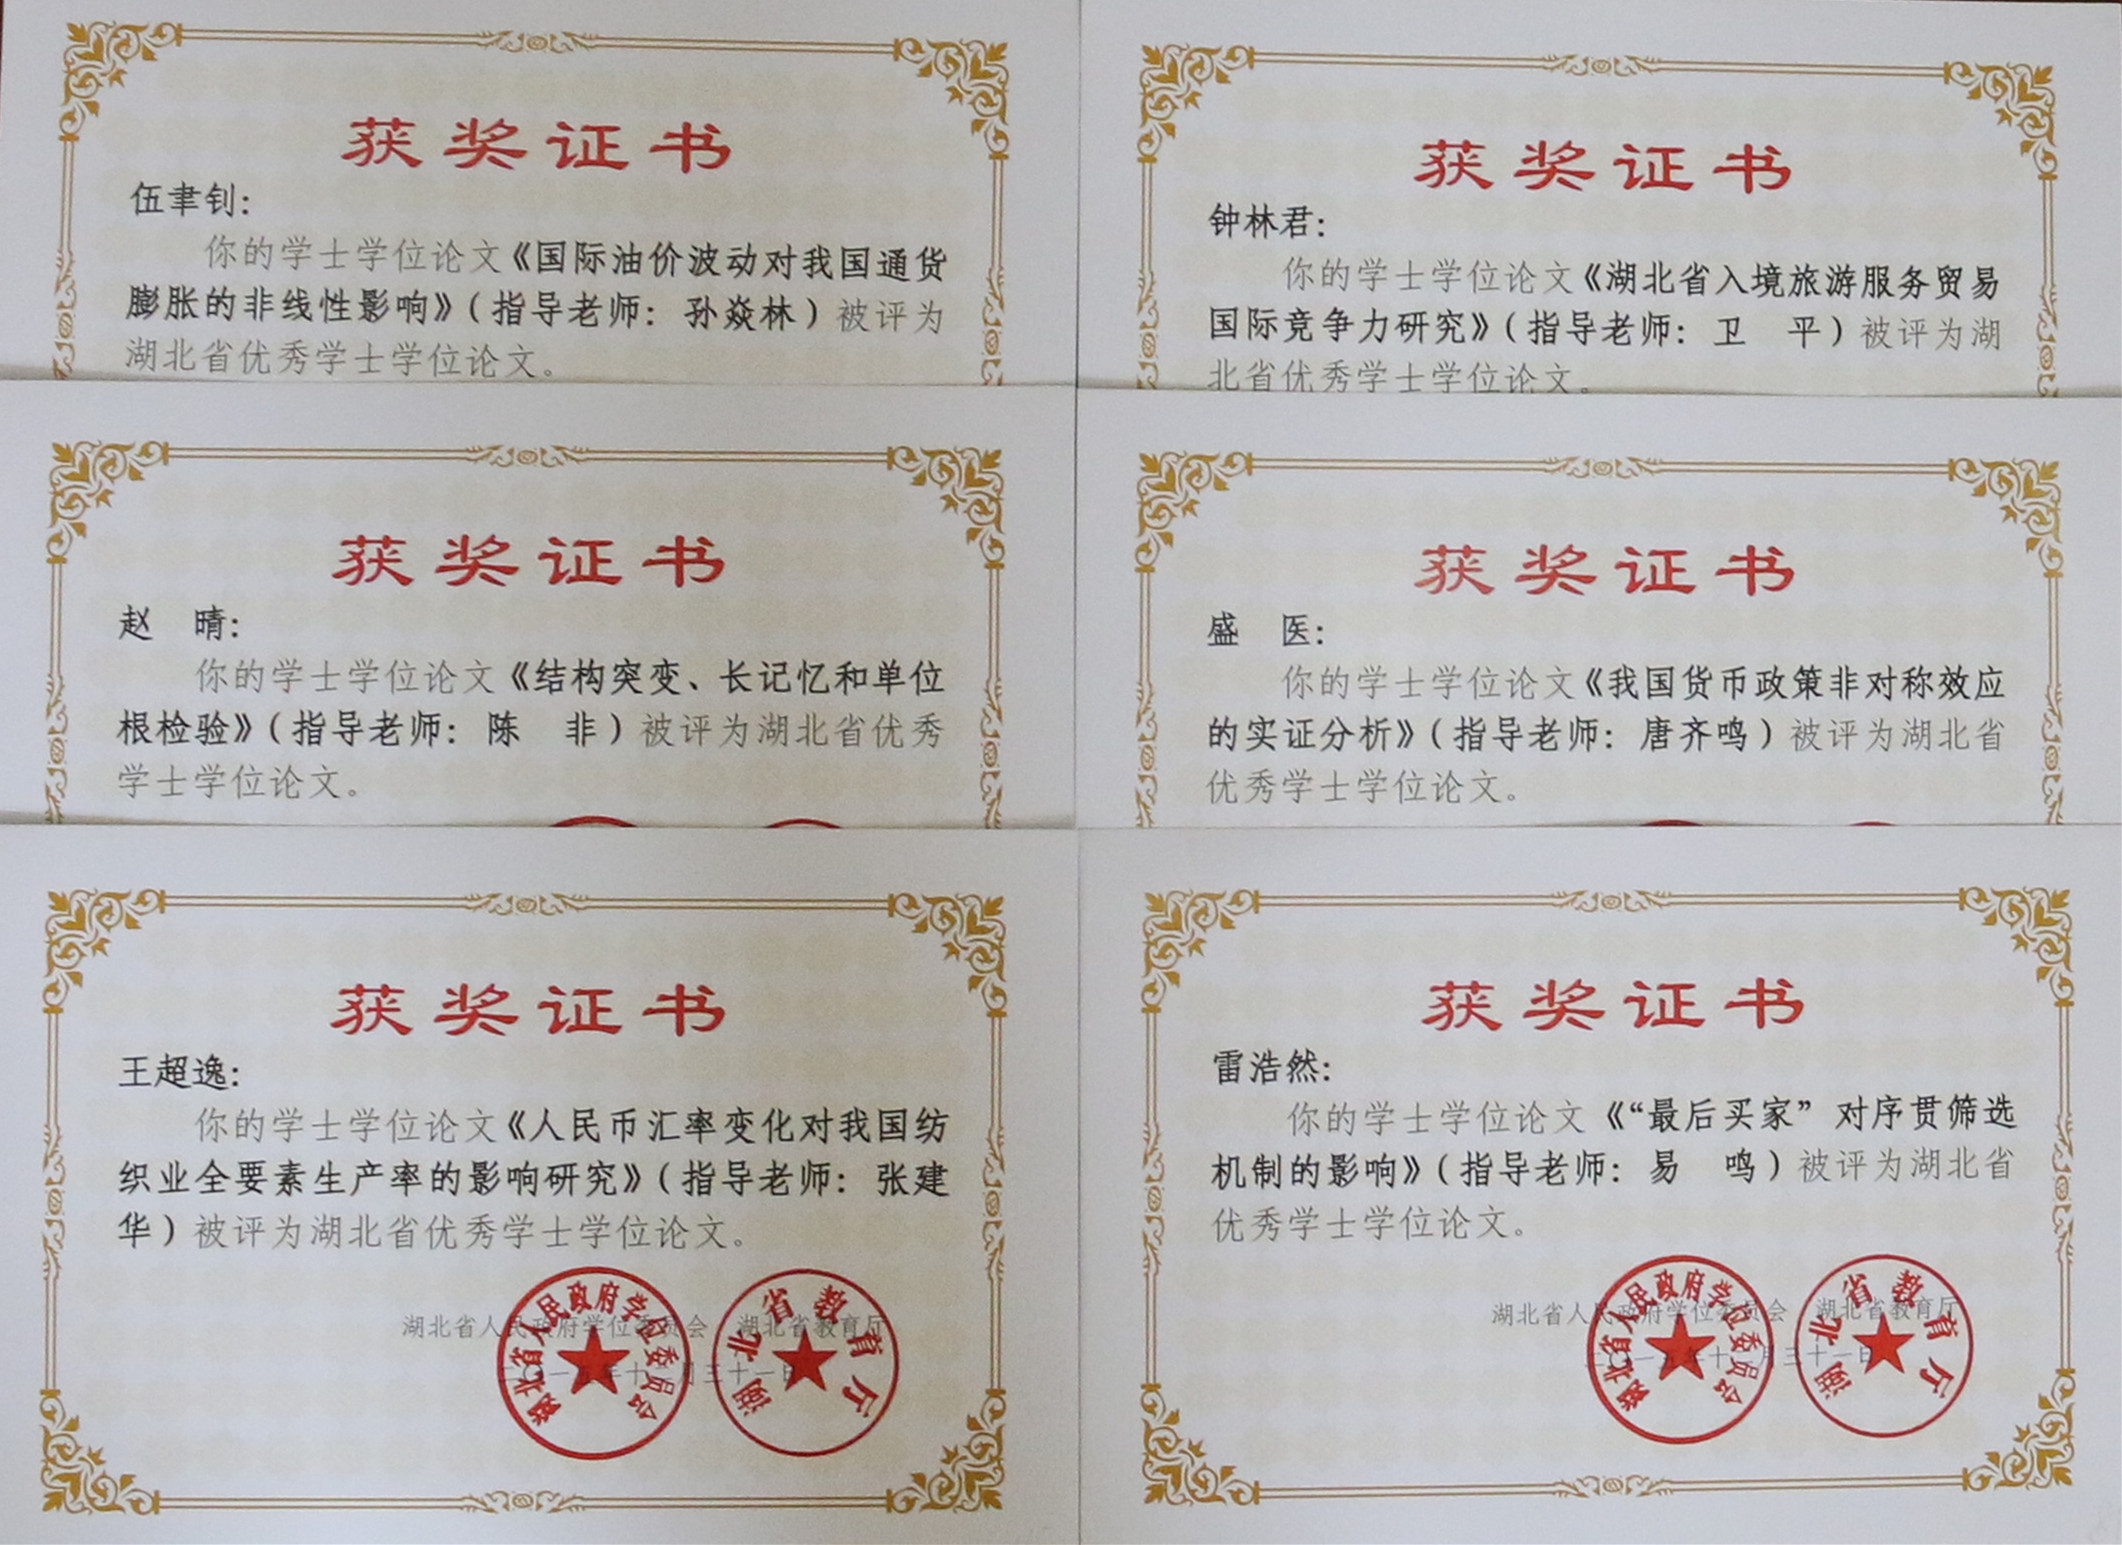 获奖证书
伍聿钊:
你的学士学位论文《国际油价波动对我国通货
膨胀的非线性影响》(指导老师: 孙焱林)被评为
湖北省优秀学士学位论文。
获奖证书
钟林君:
你的学士学位论文《湖北省入境旅游服务贸易
国际竞争力研究》(指导老师: 卫 平)被评为湖
北省优秀学士学位论文。
获奖证书
赵 晴:
你的学士学位论文《结构突变、长记忆和单位
根检验》(指导老师: 陈 非)被评为湖北省优秀
学士学位论文。
获奖证书
盛 医:
你的学士学位论文《我国货币政策非对称效应
的实证分析》(指导老师: 唐齐鸣)被评为湖北省
优秀学士学位论文。
获奖证书
王超逸:
你的学士学位论文《人民币汇率变化对我国纺
织业全要素生产率的影响研究》(指导老师: 张建
华)被评为湖北省优秀学士学位论文。
湖北省人民政府学位委员会 湖北省教育厅
年十二月三十一日
湖北省人民政府学位委员会
湖北省教育厅
获奖证书
雷浩然:
你的学士学位论文《“最后买家”对序贯筛选
机制的影响》(指导老师: 易 鸣)被评为湖北省
优秀学士学位论文。
湖北省人民政府学位委员会 湖北省教育厅
年十二月三十一日
湖北省人民政府学位委员会
湖北省教育厅